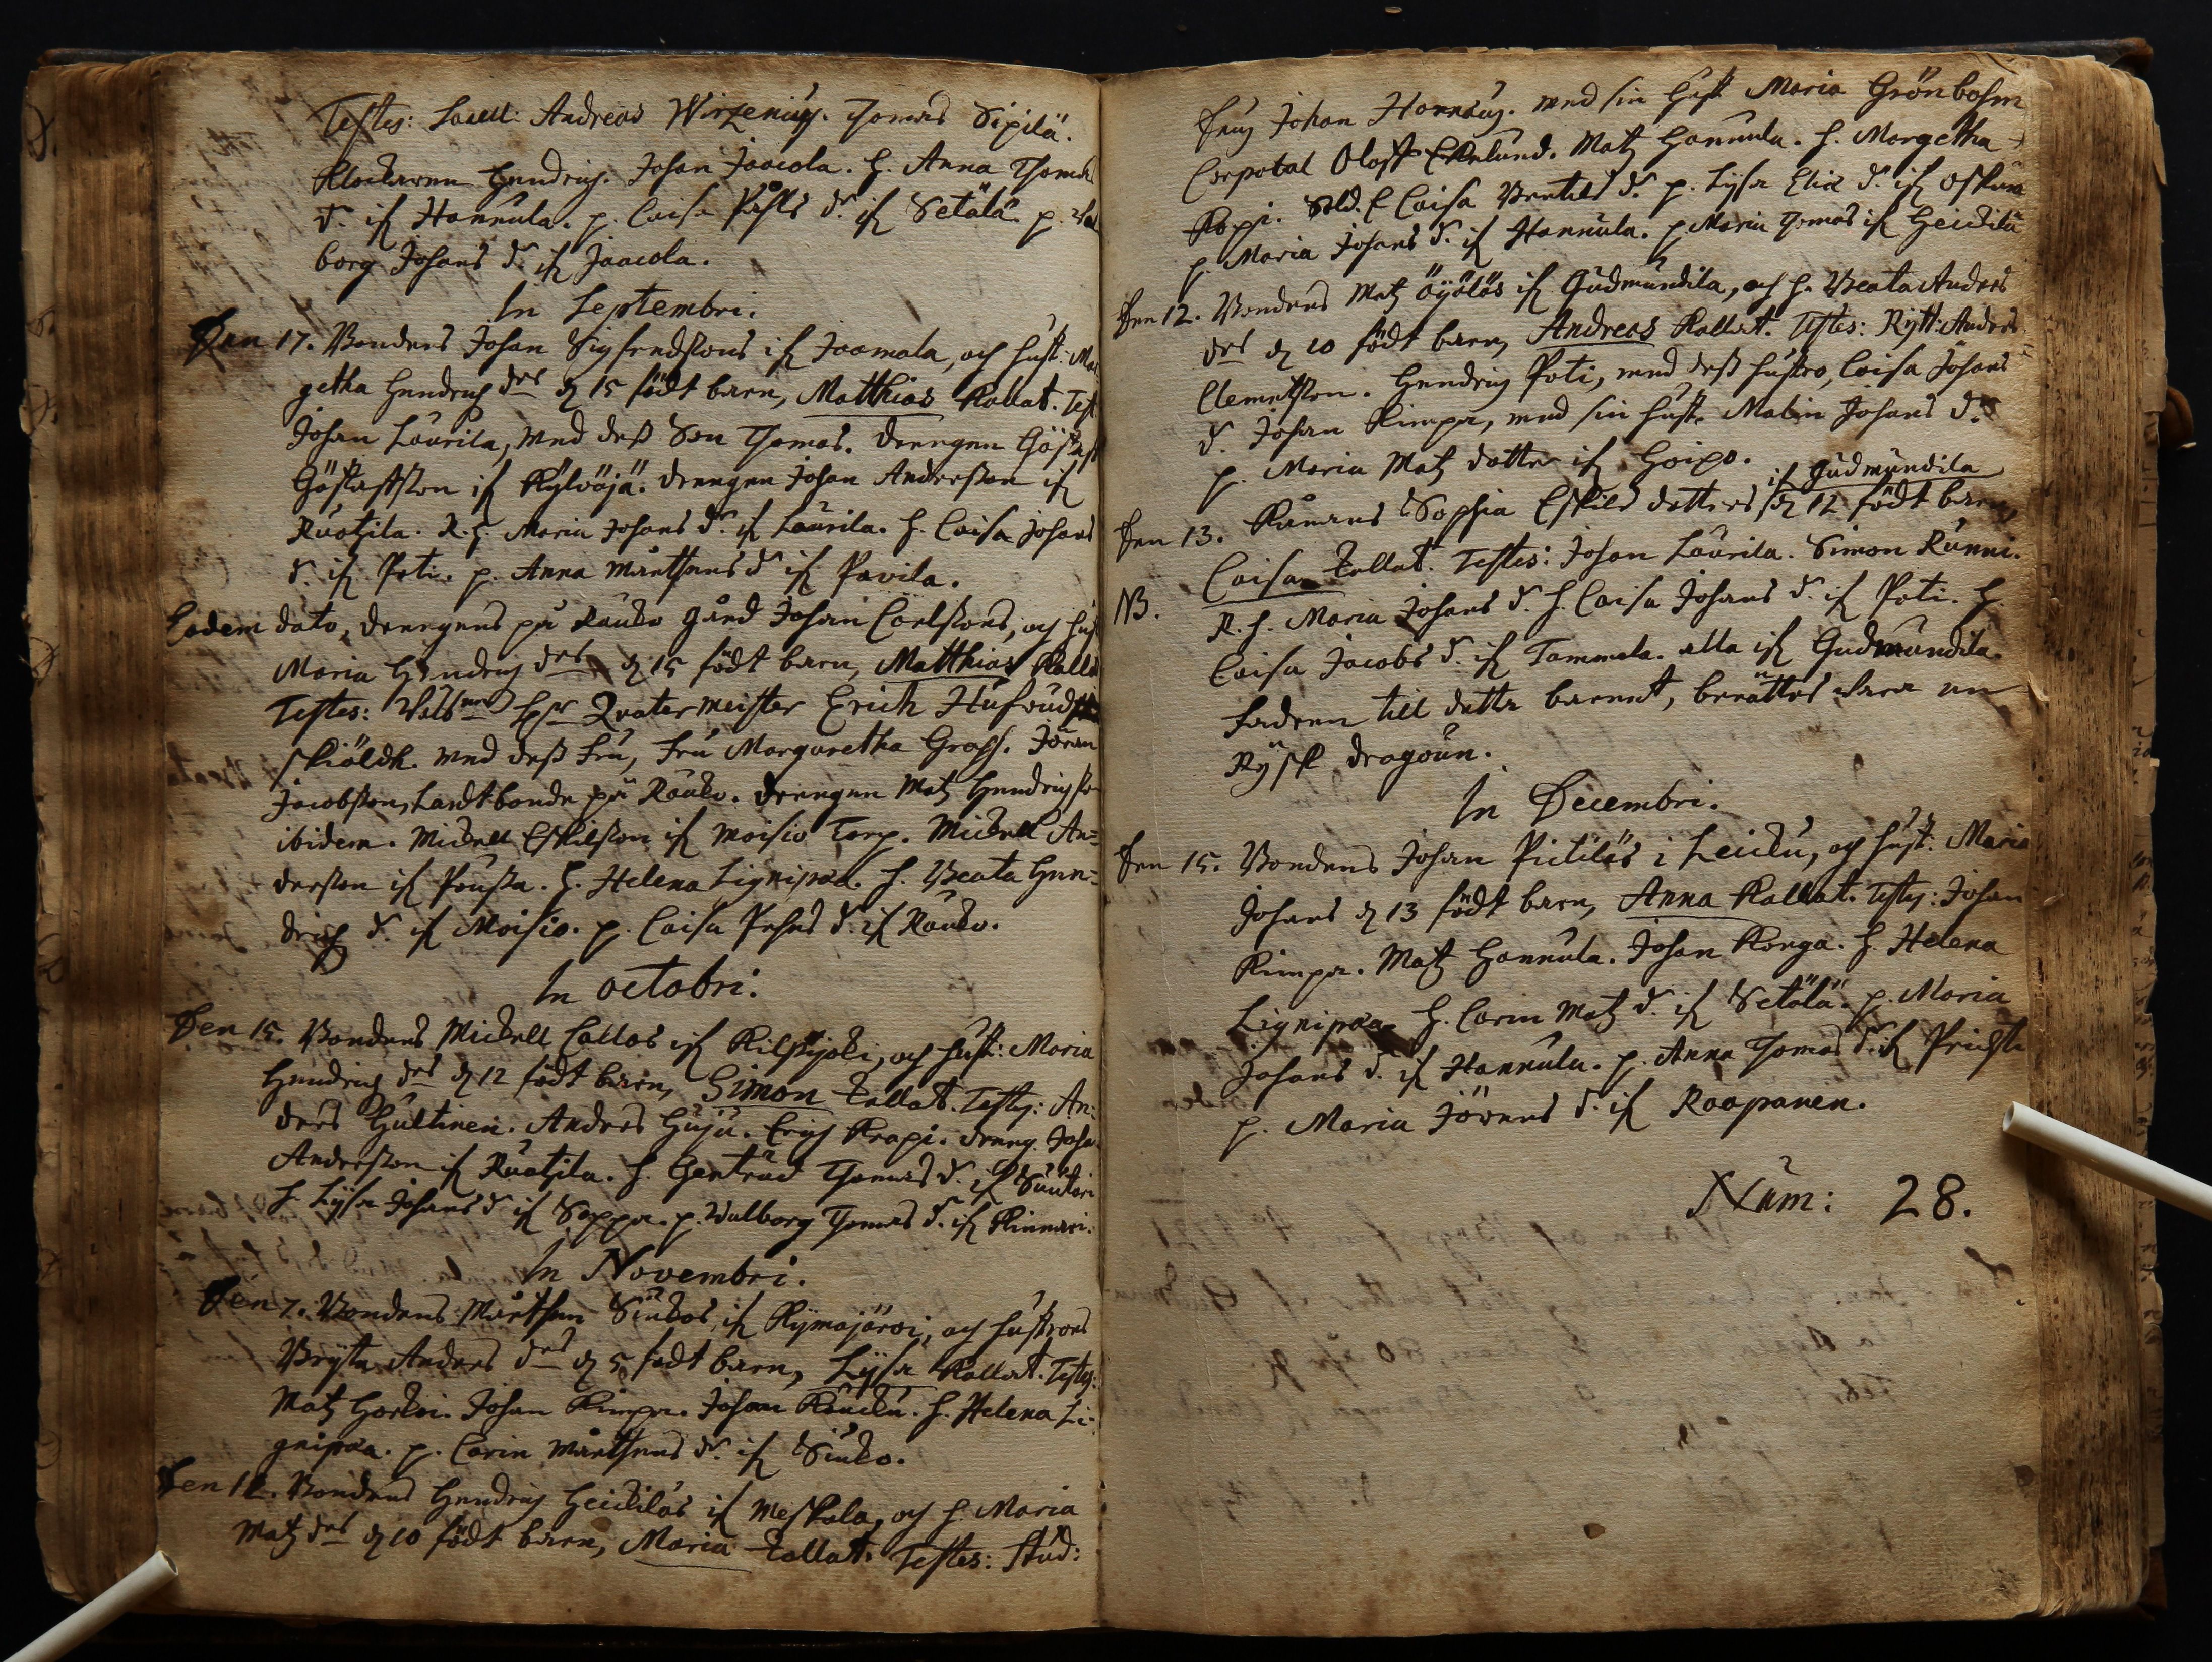 Testes: Sacell: Andreas Wirzenius. Thomas Sipilä.
Klockaren Hendrich. Johan Jaacola. H. Anna Thomas
d. if Hannula. p. Caisa Påhls d. if Setälä. p. Wal
borg Johans d. if Jaacola.
In Septembri.
Den 17. Bondens Johan Sigfredssons if Jaamala, och hust: Mar
getha Hendrichs des d 15 födt barn, Matthias Kallat. Test
Johan Laurila, med dess Son Thomas. Drengen Göstaff
Göstaffson if Kylvöjä. Drengen Johan Andersson if
Ruotzila. R. H. Maria Johans d. if Laurila. H. Caisa Johans
d. if Poti. p. Anna Mårthens d if Pavila.
Eodem dato, Drengens på Rauko gård Johan Carlssons, och hus
Maria Hendrichs des d 15 födt barn, Matthias Kalla
Testes: Hr Qvatermeister Erich Hufvud
skiöldh. med dess Fru, Fru Margaretha Grass. Jöran
Jacobsson, Landtbonde på Rauko. Drengen Matz Hendrichsso
ibidem. Mickell Eskilsson if Moisio Torp. Mickell An=
dersson if Poussa. H. Helena Lignipæa. H. Beata Hen=
drich d. if Moisio. p. Caisa Pehrs d. if Rauko.
In octobri.
Den 15. Bondens Mickell Callas if Kilpijoki, och hust: Maria
Hendrichs des d 12 födt barn, Simon kallat. Testes: An:
ders Hultinen. Anders Huju. Erich Krapi. Dreng. Joha
Andersson if Ruotzila. H. Gertrud Thomas d. if Suutari
H. Lysa Johans d if Seppä. p. Walborg Thomas d. if Kinnari.
In Novembri.
Den 7. Bondens Mårthen Siukos, if Kymäjärvi, och hustros
Bryta Anders des d 5 födt barn, Lysa Kallat. Testes:
Matz Horkoi. Johan Kimpa. Johan Kouku. H. Helena Li-
gnipæa. p. Carin Mårthens d. if Siuko.
Den 12. Bondens Hendrich Heickiläs if Meskala, och H. Maria
Matz des d 10 födt barn, Maria kallat. Testes: Stud:
Johan Hannæus. med sin hust Maria Grönbohm
Corpotal Oloff Ekelund. Matz Hannula. H. Margetha
Koppi. Sold. E Caisa Bertils d. p. Lysa Elia d. if
p. Maria Johans d. if Hannula. p Maria Thomas if Heickilä
Den 12. Bondens Matz Öyöläs if Gudmundila, och H. Beata Anders
des d 10 födt barn, Andreas Kallat. Testes: Rytt: Anders
Clemetsson. Hendrich Poti, med dess hustro, Caisa Johans
d. Johan Kimpa, med sin hust. Malin Johans d.
p. Maria Matz dotter if Hoipo.
if Gudmundila
Den 13. Kånans Sophia Eskils dotters d 12 födt barn,
Caisa kallat. Testes: Johan Laurila. Simon Runni.
NB. R. H. Maria Johans d. H. Caisa Johans d. if Poti. H.
Caisa Jacobs d. if Tammela. alla if Gudmundila.
Fadren till detta barnet, berättas vara en
Rysk dragoun.
In Decembri.
Den 15. Bondens Johan Pietiläs i Leiku, och hust: Maria
Johans d 13 födt barn, Anna Kallat. Testes: Johan
Kimpa. Matz Hannula. Johan Konga. H. Helena
Lignipæa. H. Carin Matz d. if Setälä. p. Maria
Johans d. if Hannula. p. Anna Thomas d. if
p. Maria Jörens d. if Raapanen.
Num: 28.